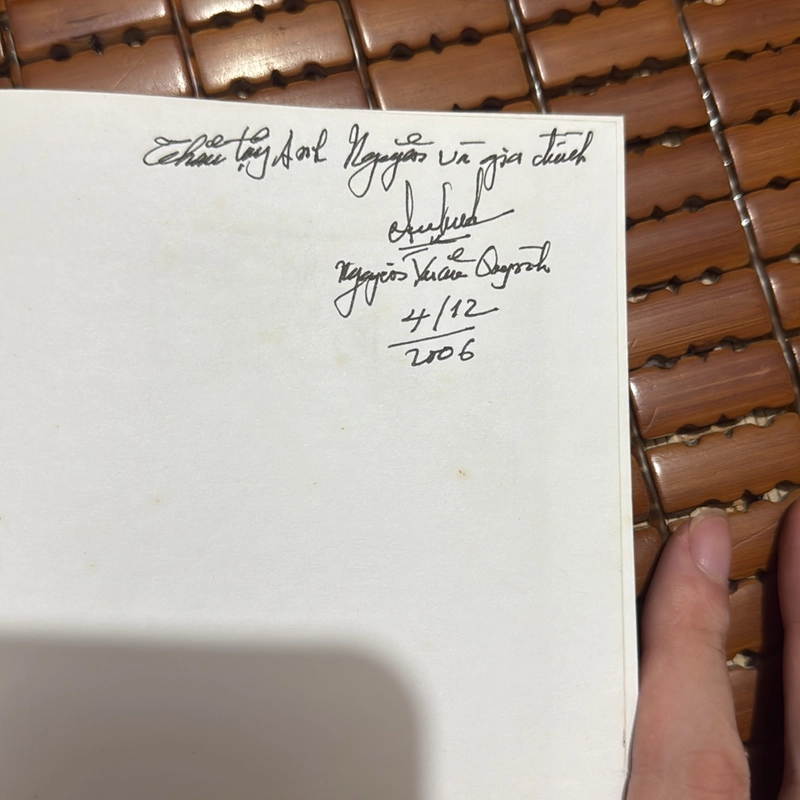 Thân tặng Anh Nguyễn và gia đình
Nguyễn Xuân Quỳnh
4/12
2006